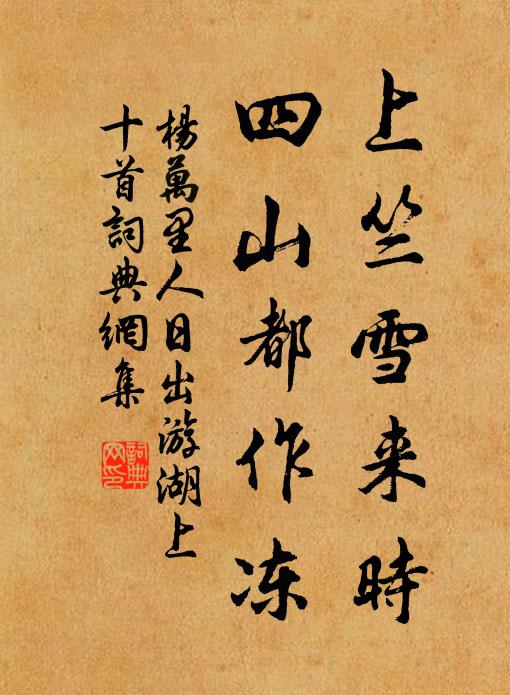 上竺雪来時
四山都作冻
楊萬里人日出游湖上
十首詞典網集
詞典网印